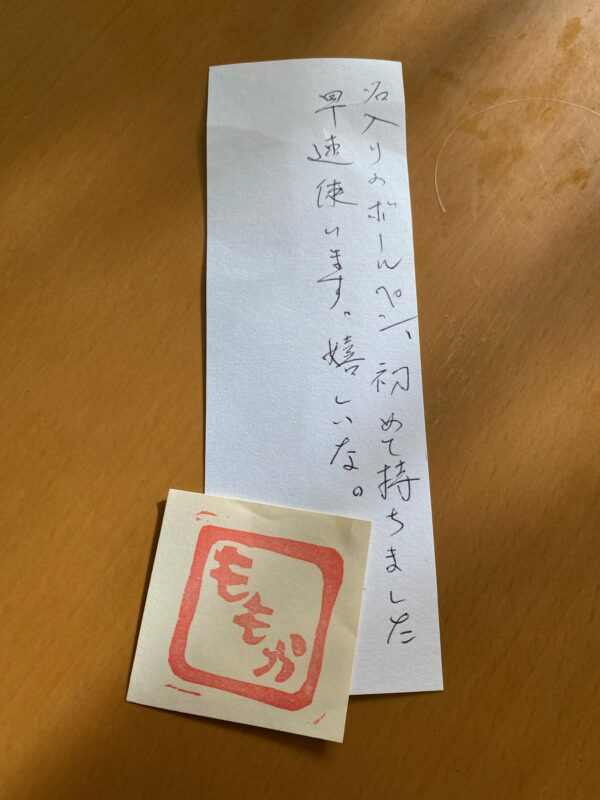 名入りのボールペン、初めて持ちました
早速使います。嬉しいな。
ももか